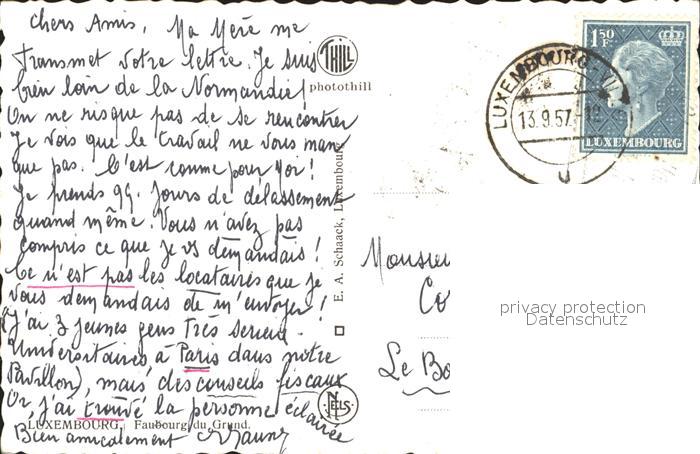 Chers Amis, Ma Mère me
transmet votre lettre. Je suis
bien loin de la Normandie!
On ne risque pas de se rencontrer
Je vois que le travail ne vous man
que pas. C'est comme pour moi!
Je prends qq. jours de délassement
quand même. Vous n'avez pas
compris ce que je vs demandais!
Ce n'est pas les locataires que je
vous demandais de m'envoyer!
J'ai 3 jeunes gens très sérieux.
Universitaires à Paris dans notre
Pavillon), mais des conseils fiscaux
Or, j'ai trouvé la personne éclairée
Bien amicalement
THILL
photothill
E. A. Schaack, Luxembourg
NELS
LUXEMBOURG, Faubourg du Grund.
LUXEMBOURG-VI
13.9.57
1.50 F
LUXEMBOURG
Monsieu
Co
Le Bo
privacy protection
Datenschutz